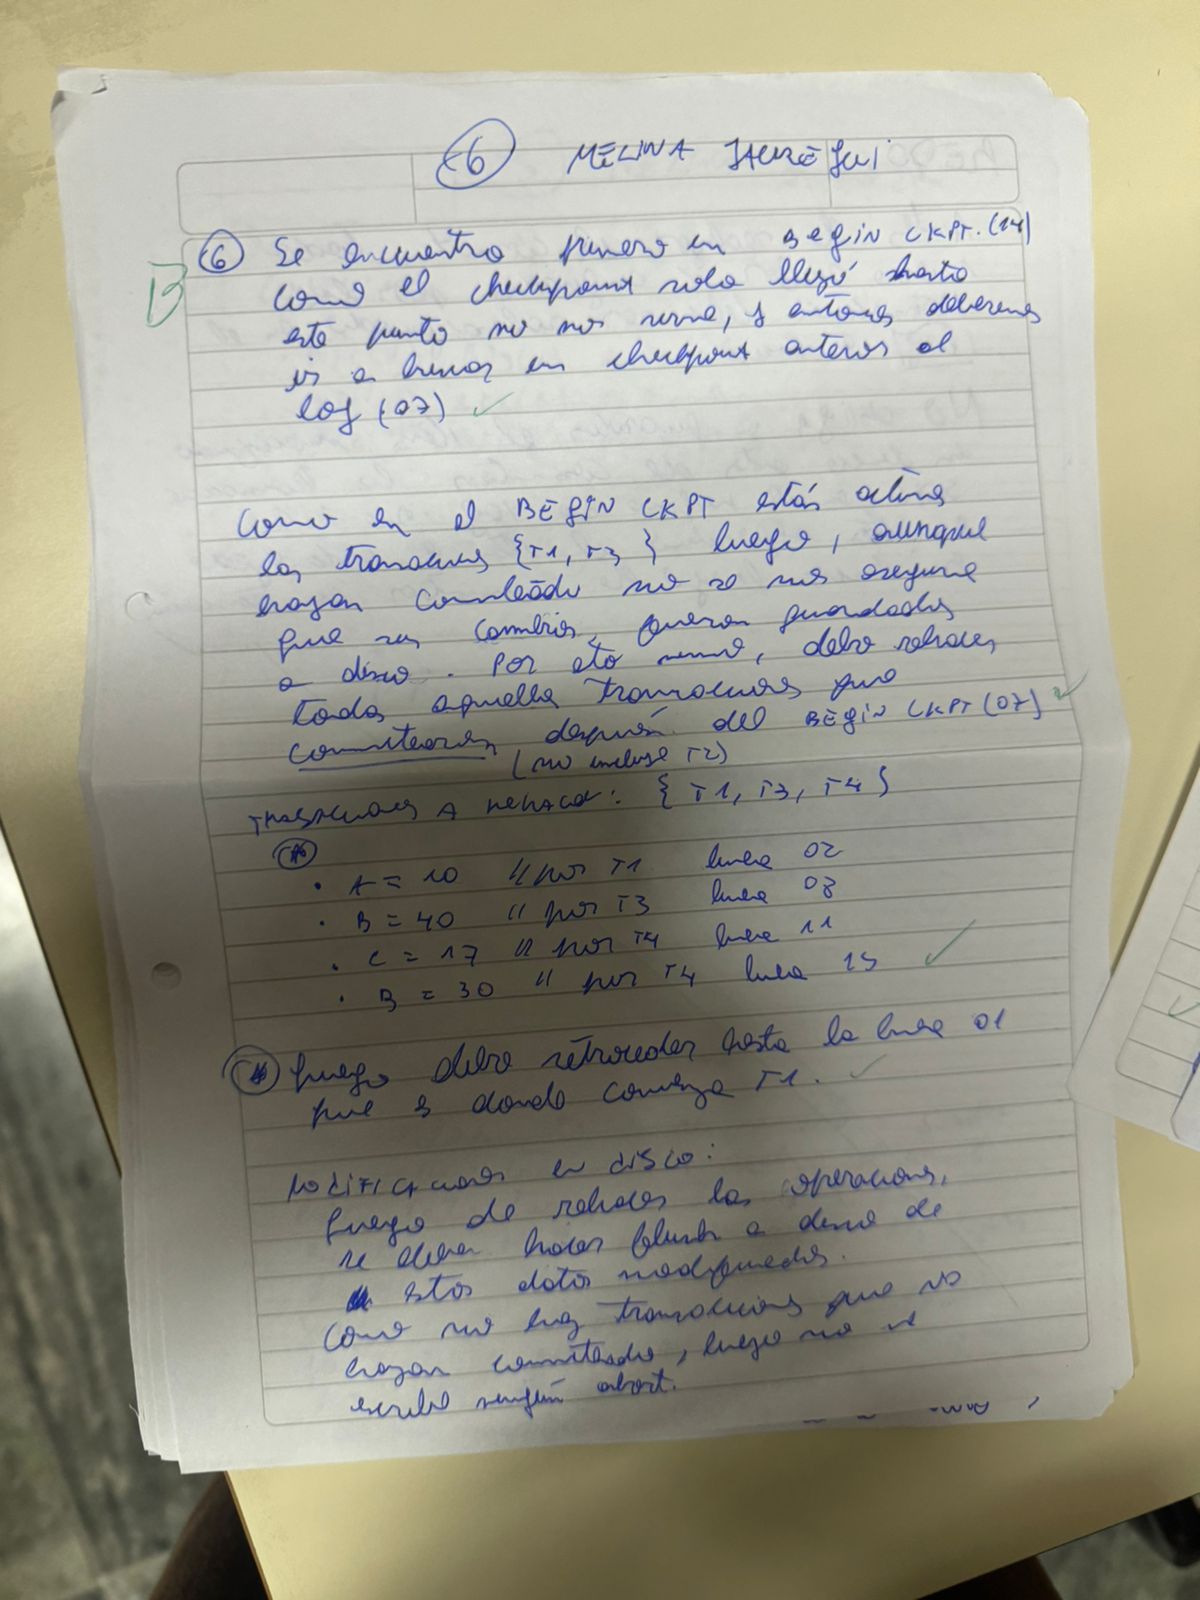 6 MELINA JAUREGUI
B
6 Se encuentra primero un BEGIN CKPT. (14)
como el checkpoint solo llegó hasta
este punto no nos sirve, y entonces deberemos
ir a buscar un checkpoint anterior al
log (07) ✓
Como en el BEGIN CKPT están activas
las transacciones {T1, T3} luego, aunque
hayan commiteado no se nos asegura
que sus cambios fueron guardados
a disco. Por esto mismo, debo rehacer
todas aquellas transacciones que
commitearon después del BEGIN CKPT (07) ✓
(no incluye T2)
TRANSACCIONES A REHACER: {T1, T3, T4}
(*)
• A = 10 // por T1 linea 02
• B = 40 // por T3 linea 08
• C = 17 // por T4 linea 11
• B = 30 // por T4 linea 15 ✓
(*) Luego debo retroceder hasta la linea 01
que es donde comienza T1. ✓
MODIFICACIONES EN DISCO:
Luego de rehacer las operaciones,
se deben hacer flush a disco de
estos datos modificados.
Como no hay transacciones que no
hayan commiteado, luego no se
escribe ningún abort.